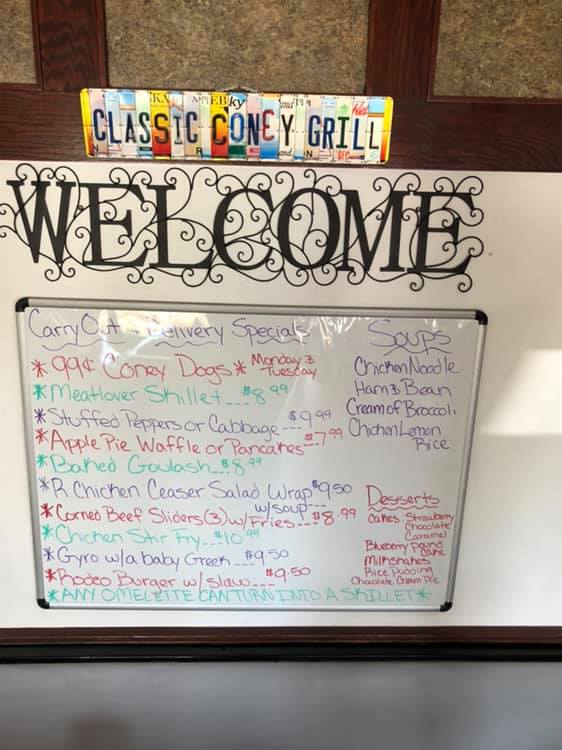 CLASSIC CONEY GRILL
WELCOME
Carry Out & Delivery Specials
*99¢ Coney Dogs* Monday & Tuesday
*Meatlover Skillet---$8.99
*Stuffed Peppers or Cabbage---$9.99
*Apple Pie Waffle or Pancakes---$7.99
*Baked Goulash---$8.99
*R. Chicken Ceaser Salad Wrap $9.50
w/soup---
*Corned Beef Sliders(3) w/Fries---$8.99
*Chicken Stir Fry---$10.99
*Gyro w/a baby Greek---$9.50
*Rodeo Burger w/slaw---$9.50
*ANY OMELETTE CAN TURN INTO A SKILLET*
Soups
Chicken Noodle
Ham & Bean
Cream of Broccoli
Chicken Lemon
Rice
Desserts
Cakes: Strawberry
Chocolate
Caramel
Blueberry Pound
Cake
Milkshakes
Rice Pudding
Chocolate Cream Pie